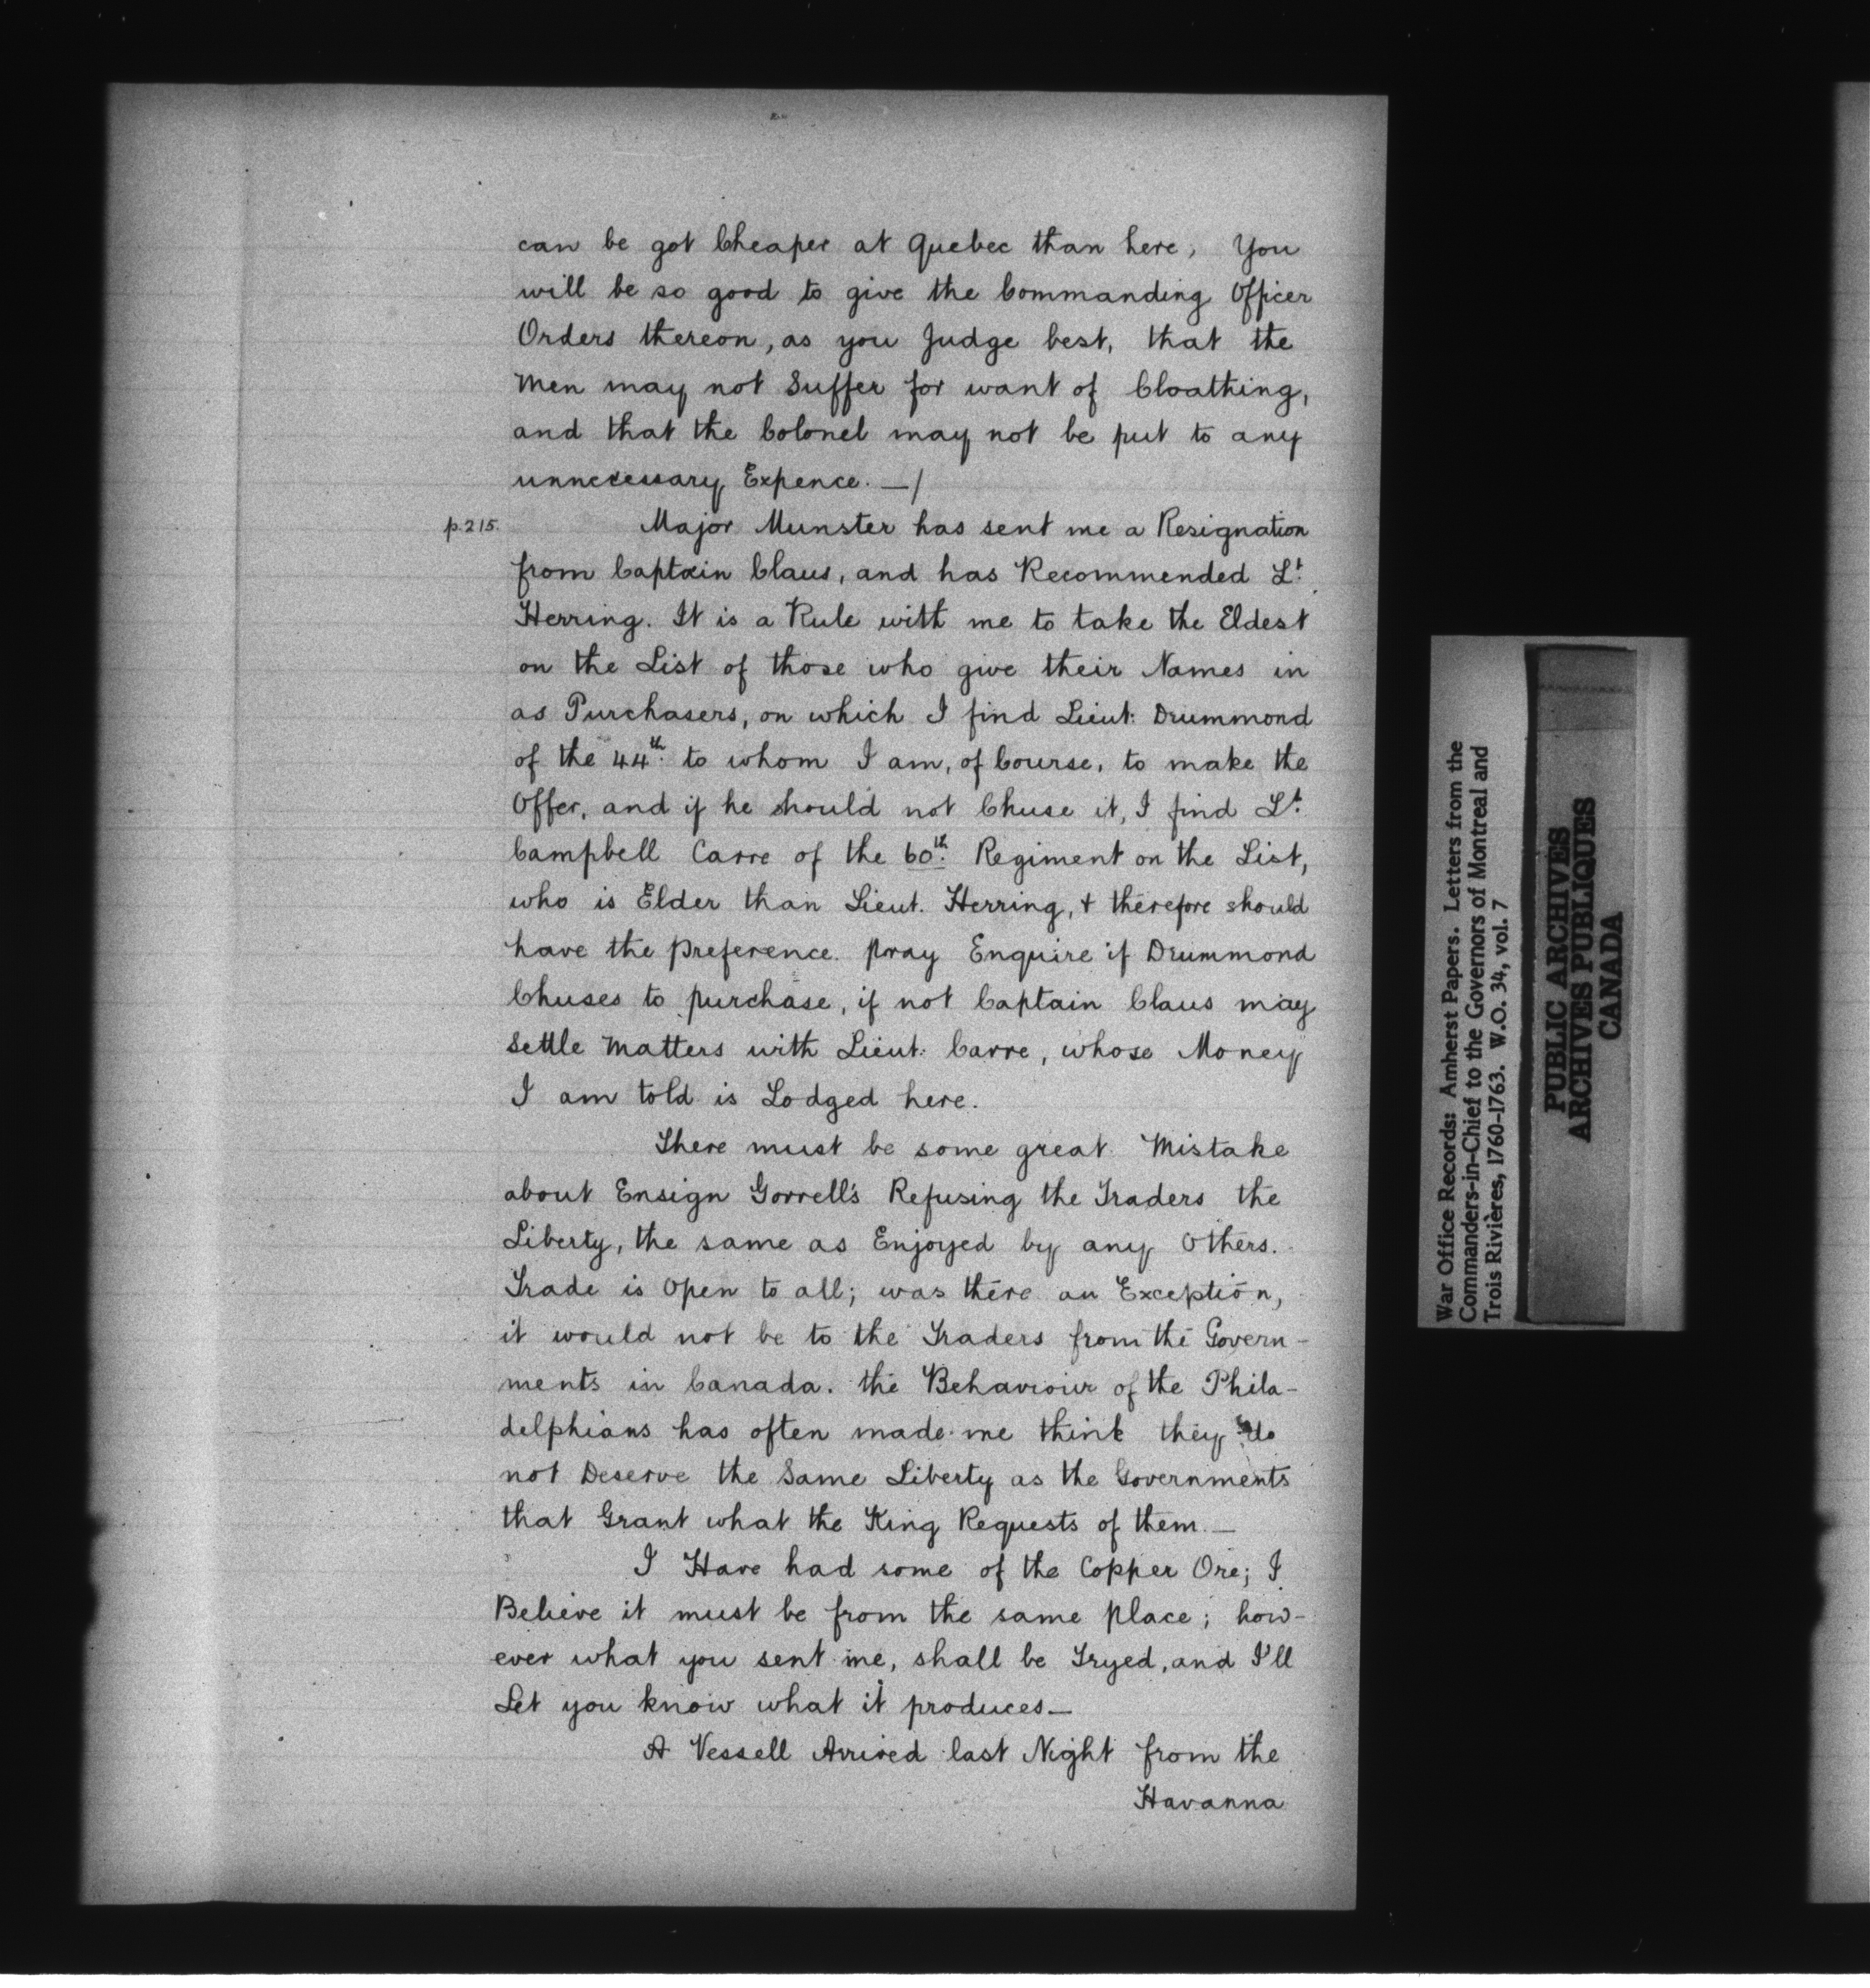 can be got Cheaper at Quebec than here; You
will be so good to give the Commanding Officer
Orders thereon, as you Judge best, that the
Men may not Suffer for want of Cloathing,
and that the Colonel may not be put to any
unnecessary Expence. —/
p. 215. Major Munster has sent me a Resignation
from Captain Claus, and has Recommended Lt.
Herring. It is a Rule with me to take the Eldest
on the List of those who give their Names in
as Purchasers, on which I find Lieut: Drummond
of the 44th. to whom I am, of Course, to make the
Offer, and if he should not Chuse it, I find Lt.
Campbell Carre of the 60th. Regiment on the List,
who is Elder than Lieut. Herring, & therefore should
have the preference. pray Enquire if Drummond
Chuses to purchase, if not Captain Claus may
Settle Matters with Lieut: Carre, whose Money
I am told is Lodged here.
There must be some great Mistake
about Ensign Gorrell's Refusing the Traders the
Liberty, the same as Enjoyed by any Others.
Trade is Open to all; was there an Exception,
it would not be to the Traders from the Govern-
ments in Canada. the Behaviour of the Phila-
delphians has often made me think they do
not Deserve the Same Liberty as the Governments
that Grant what the King Requests of them. —
I Have had some of the Copper Ore; I
Believe it must be from the same place; how-
ever what you sent me, shall be Tryed, and I'll
Let you know what it produces —
A Vessell Arrived last Night from the
Havanna
War Office Records: Amherst Papers. Letters from the
Commanders-in-Chief to the Governors of Montreal and
Trois Rivières, 1760-1763. W.O. 34, vol. 7
PUBLIC ARCHIVES
ARCHIVES PUBLIQUES
CANADA